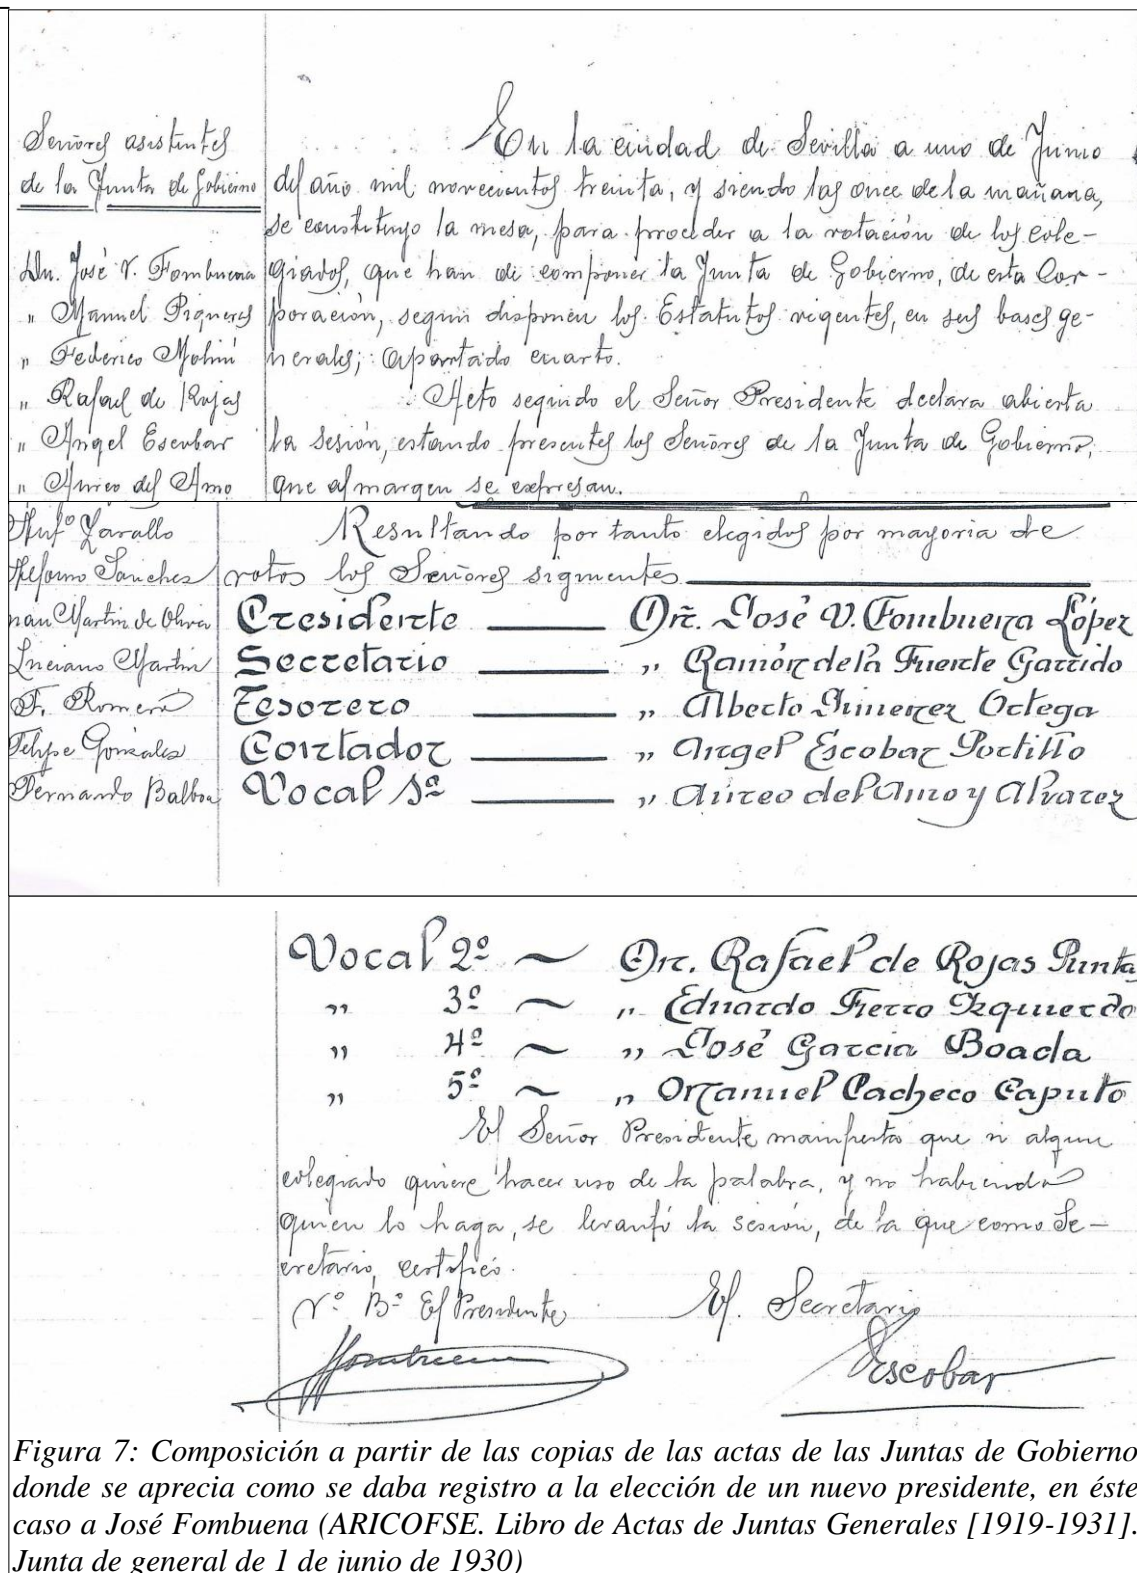 Señores asistentes
de la Junta de Gobierno
Dn. José V. Fombuena
" Manuel Piqueres
" Federico Molini
" Rafael de Rojas
" Angel Escobar
" Aureo del Amo
En la ciudad de Sevilla a uno de Junio
del año mil novecientos treinta, y siendo las once de la mañana,
se constituyo la mesa, para proceder a la votación de los cole-
giados, que han de componer la Junta de Gobierno, de esta Cor-
poración, según disponen los Estatutos vigentes, en sus bases ge-
nerales; apartado cuarto.
Acto seguido el Señor Presidente declara abierta
la sesión, estando presentes los Señores de la Junta de Gobierno,
que al margen se expresan.
Antº Zarallo
Sanchez
Martin de Oliva
Luciano Martin
F. Romero
Felipe Gonzales
Fernando Balboa
Resultando por tanto elegidos por mayoria de
votos los Señores siguientes
Presidente Dn. José V. Fombuena López
Secretario " Ramón de la Fuente Garrido
Tesorero " Alberto Gimenez Ortega
Contador " Angel Escobar Portillo
Vocal 1º " Aureo del Amo y Alvarez
Vocal 2º ~ Dn. Rafael de Rojas Punta
" 3º ~ " Eduardo Fierro Izquierdo
" 4º ~ " José Garcia Boada
" 5º ~ " Manuel Pacheco Caputo
El Señor Presidente manifiesta que si algun
colegiado quiere hacer uso de la palabra, y no habiendo
quien lo haga, se levantó la sesión, de la que como Se-
cretario, certifico.
Vº Bº El Presidente El Secretario
Fombuena Escobar
Figura 7: Composición a partir de las copias de las actas de las Juntas de Gobierno
donde se aprecia como se daba registro a la elección de un nuevo presidente, en éste
caso a José Fombuena (ARICOFSE. Libro de Actas de Juntas Generales [1919-1931].
Junta de general de 1 de junio de 1930)